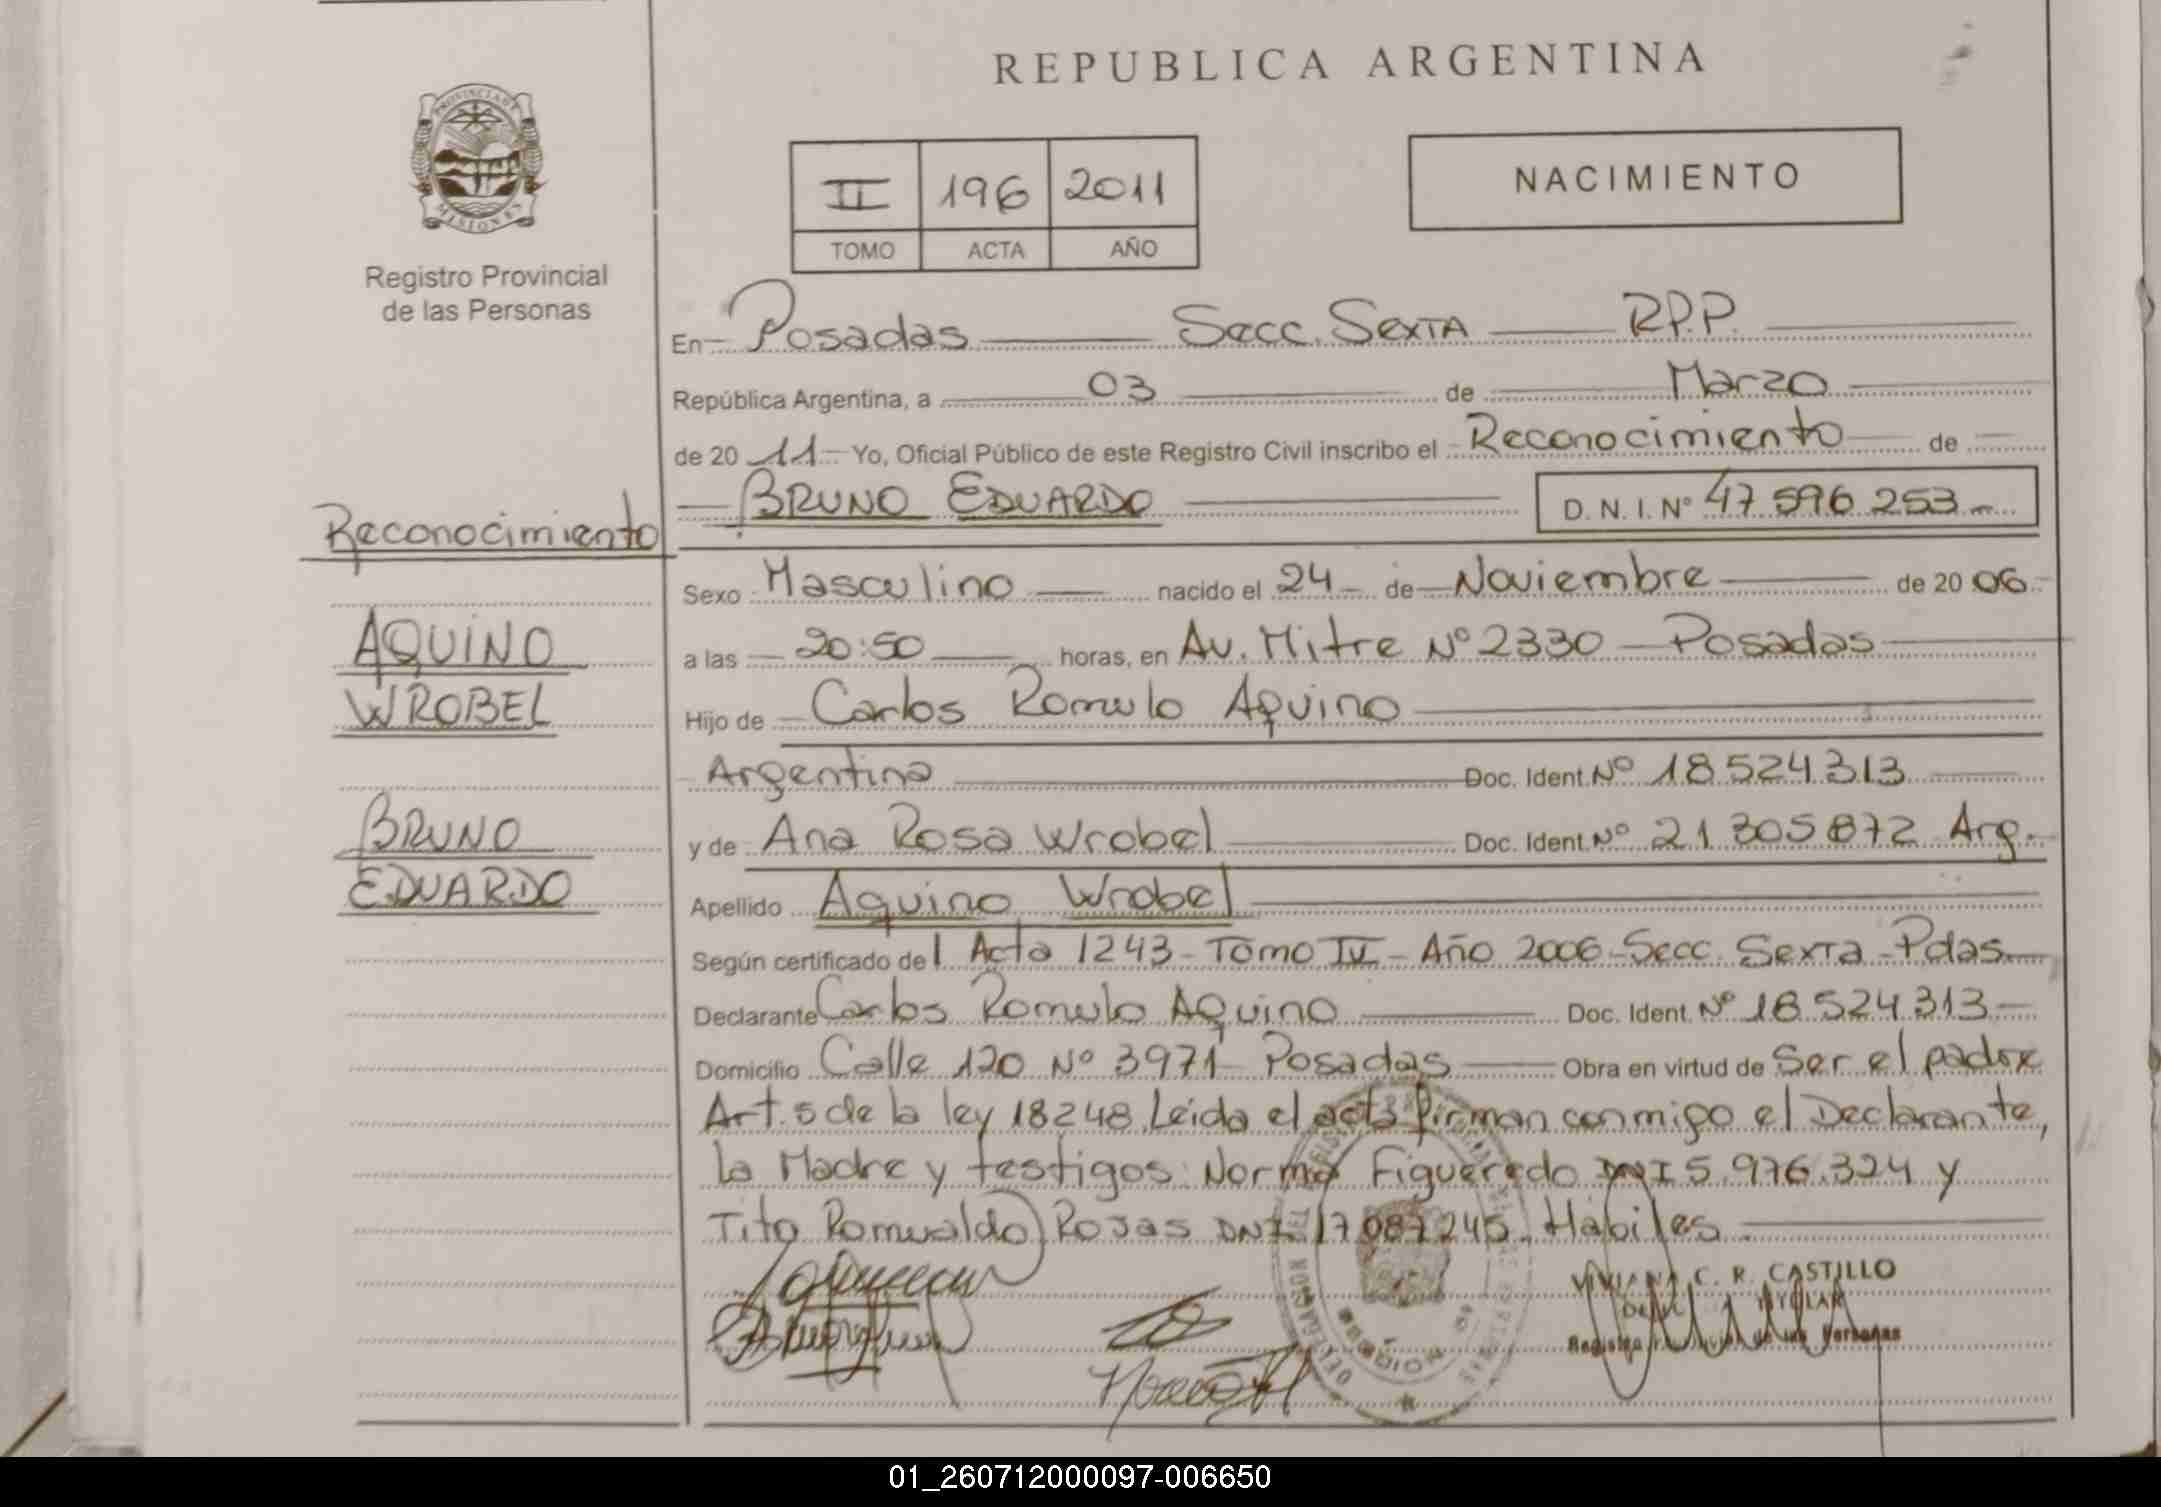 REPUBLICA ARGENTINA
PROVINCIA DE
MISIONES
Registro Provincial
de las Personas
II 196 2011
TOMO ACTA AÑO
NACIMIENTO
En Posadas Secc. Sexta R.P.P.
República Argentina, a 03 de Marzo
de 20 11 Yo, Oficial Público de este Registro Civil inscribo el Reconocimiento de
BRUNO EDUARDO D.N.I. Nº 47 596 253
Reconocimiento
AQUINO
WROBEL
BRUNO
EDUARDO
Sexo Masculino nacido el 24 de Noviembre de 20 06
a las 20:50 horas, en Av. Mitre Nº 2330 Posadas
Hijo de Carlos Romulo Aquino
Argentina Doc. Ident. Nº 18 524 313
y de Ana Rosa Wrobel Doc. Ident. Nº 21 305 872 Arg.
Apellido Aquino Wrobel
Según certificado del Acta 1243 - Tomo IV - Año 2006 - Secc. Sexta - Pdas.
Declarante Carlos Romulo Aquino Doc. Ident. Nº 18 524 313
Domicilio Calle 120 Nº 3971 Posadas Obra en virtud de Ser el padre
Art. 5 de la ley 18248. Leida el acta firman conmigo el Declarante,
la Madre y testigos: Norma Figueredo DNI 5.976.324 y
Tito Romualdo Rojas DNI 17 087 245. Habiles
VIVIANA C. R. CASTILLO
01_260712000097-006650